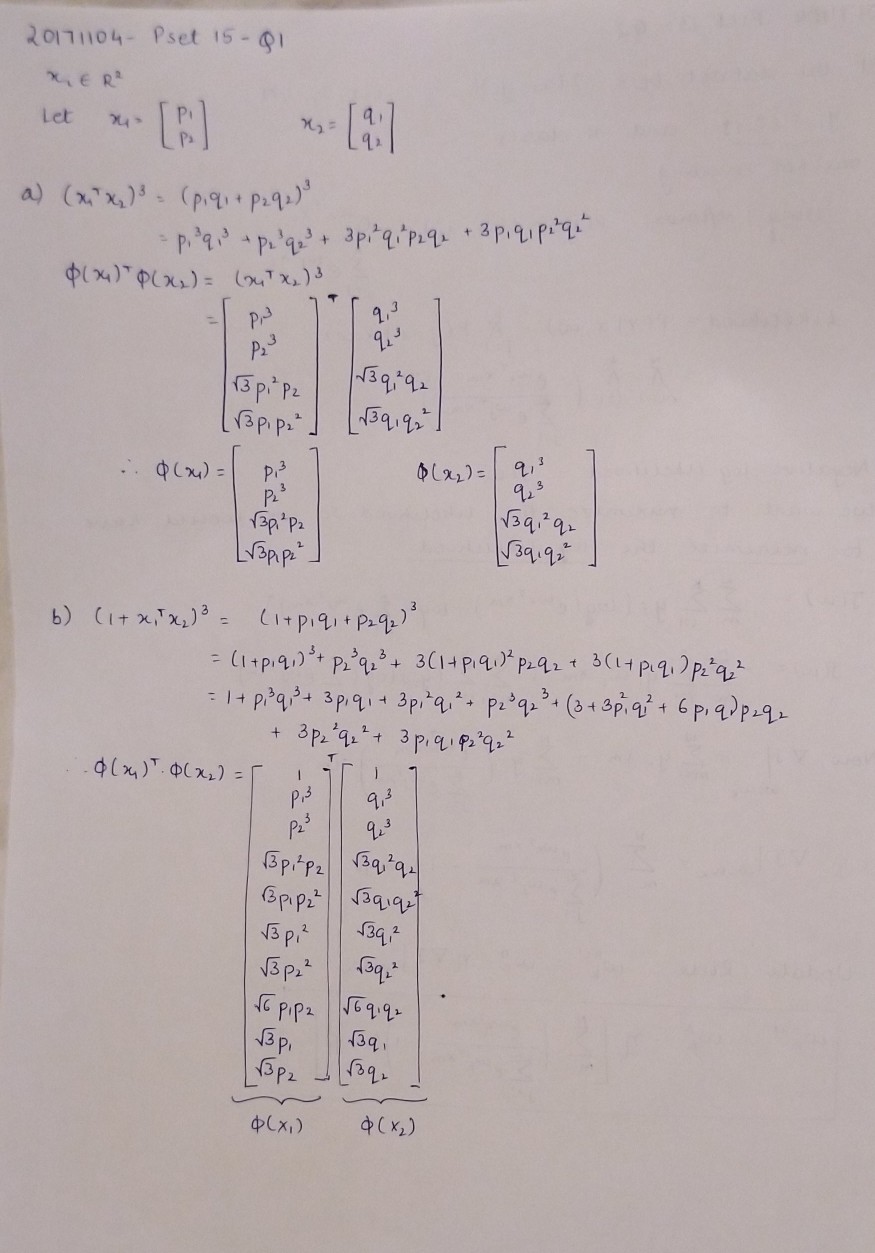 20171104 - Pset 15 - Q1
x₁ ∈ R²
Let x₁ = [p₁ p₂] x₂ = [q₁ q₂]
a) (x₁ᵀx₂)³ = (p₁q₁ + p₂q₂)³
= p₁³q₁³ + p₂³q₂³ + 3p₁²q₁²p₂q₂ + 3p₁q₁p₂²q₂²
ϕ(x₁)ᵀϕ(x₂) = (x₁ᵀx₂)³
= [p₁³ p₂³ √3p₁²p₂ √3p₁p₂²]ᵀ [q₁³ q₂³ √3q₁²q₂ √3q₁q₂²]
∴ ϕ(x₁) = [p₁³ p₂³ √3p₁²p₂ √3p₁p₂²] ϕ(x₂) = [q₁³ q₂³ √3q₁²q₂ √3q₁q₂²]
b) (1 + x₁ᵀx₂)³ = (1 + p₁q₁ + p₂q₂)³
= (1+p₁q₁)³ + p₂³q₂³ + 3(1+p₁q₁)²p₂q₂ + 3(1+p₁q₁)p₂²q₂²
= 1 + p₁³q₁³ + 3p₁q₁ + 3p₁²q₁² + p₂³q₂³ + (3 + 3p₁²q₁² + 6p₁q₁)p₂q₂
+ 3p₂²q₂² + 3p₁q₁p₂²q₂²
∴ ϕ(x₁)ᵀ.ϕ(x₂) = [1 p₁³ p₂³ √3p₁²p₂ √3p₁p₂² √3p₁² √3p₂² √6p₁p₂ √3p₁ √3p₂]ᵀ [1 q₁³ q₂³ √3q₁²q₂ √3q₁q₂² √3q₁² √3q₂² √6q₁q₂ √3q₁ √3q₂]
ϕ(x₁) ϕ(x₂)